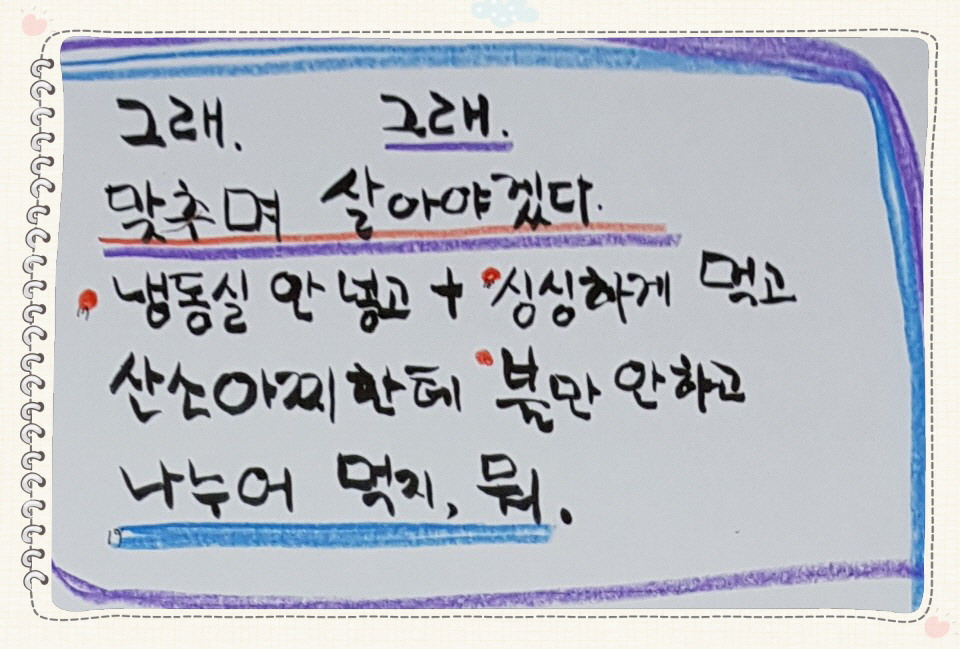 그래. 그래.
맞추며 살아야겠다.
냉동실 안 넣고 + 싱싱하게 먹고
산소아찌한테 불만 안하고
나누어 먹지, 뭐.
19